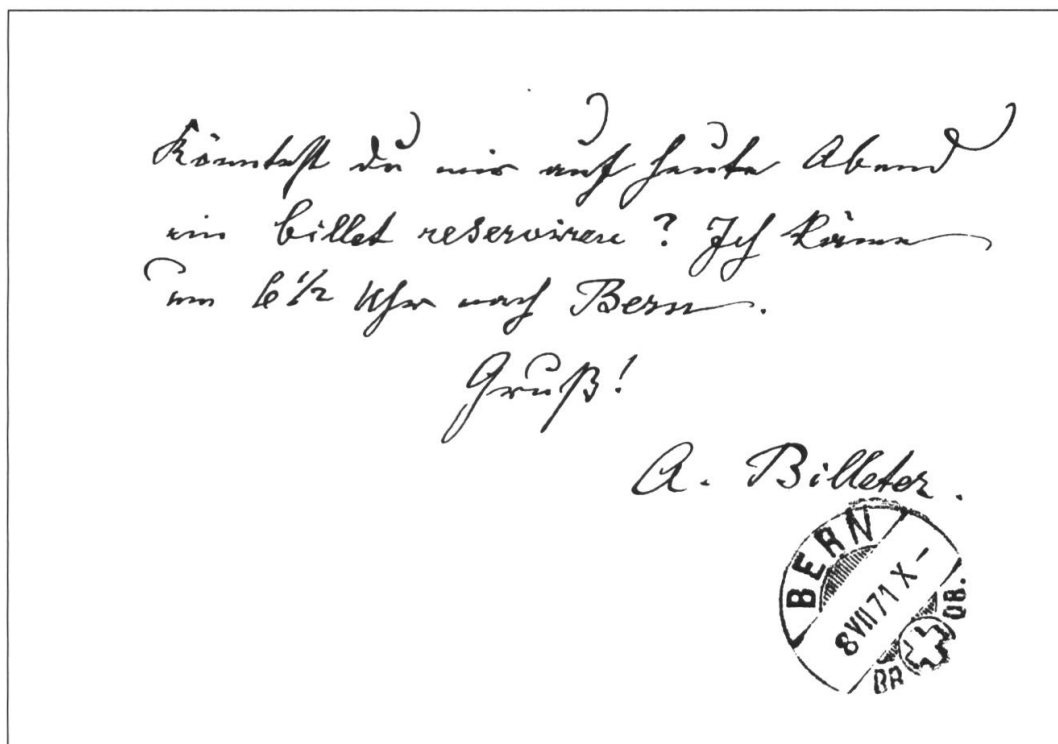 Könntest du mir auf heute Abend
ein billet reserviren? Ich käme
um 6 ½ Uhr nach Bern.
Gruß!
A. Billeter.
BERN
8 VII 71 X –